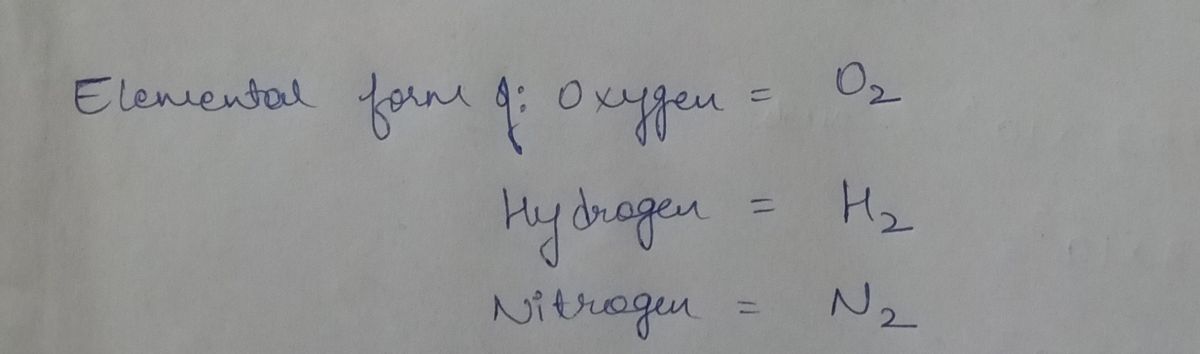 Elemental form of: Oxygen = O₂
Hydrogen = H₂
Nitrogen = N₂